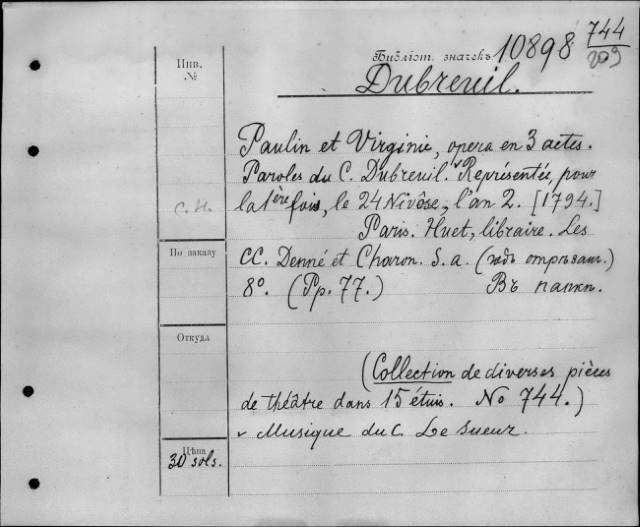 Библіот. значекъ 10898 744
209
Инв.
№
Dubreuil.
Paulin et Virginie, opera en 3 actes.
Paroles du C. Dubreuil. Représentée, pour
la 1ère fois, le 24 Nivôse, l'an 2. [1794.]
С. Н.
Paris. Huet, libraire. Les
По заказу
CC. Denné et Charon. S. a. (
8º. (Pp. 77.) Въ папкѣ.
Откуда
(Collection de diverses pièces
de théâtre dans 15 étuis. No 744.)
v Musique du C. Le Sueur.
Цѣна
30 sols.